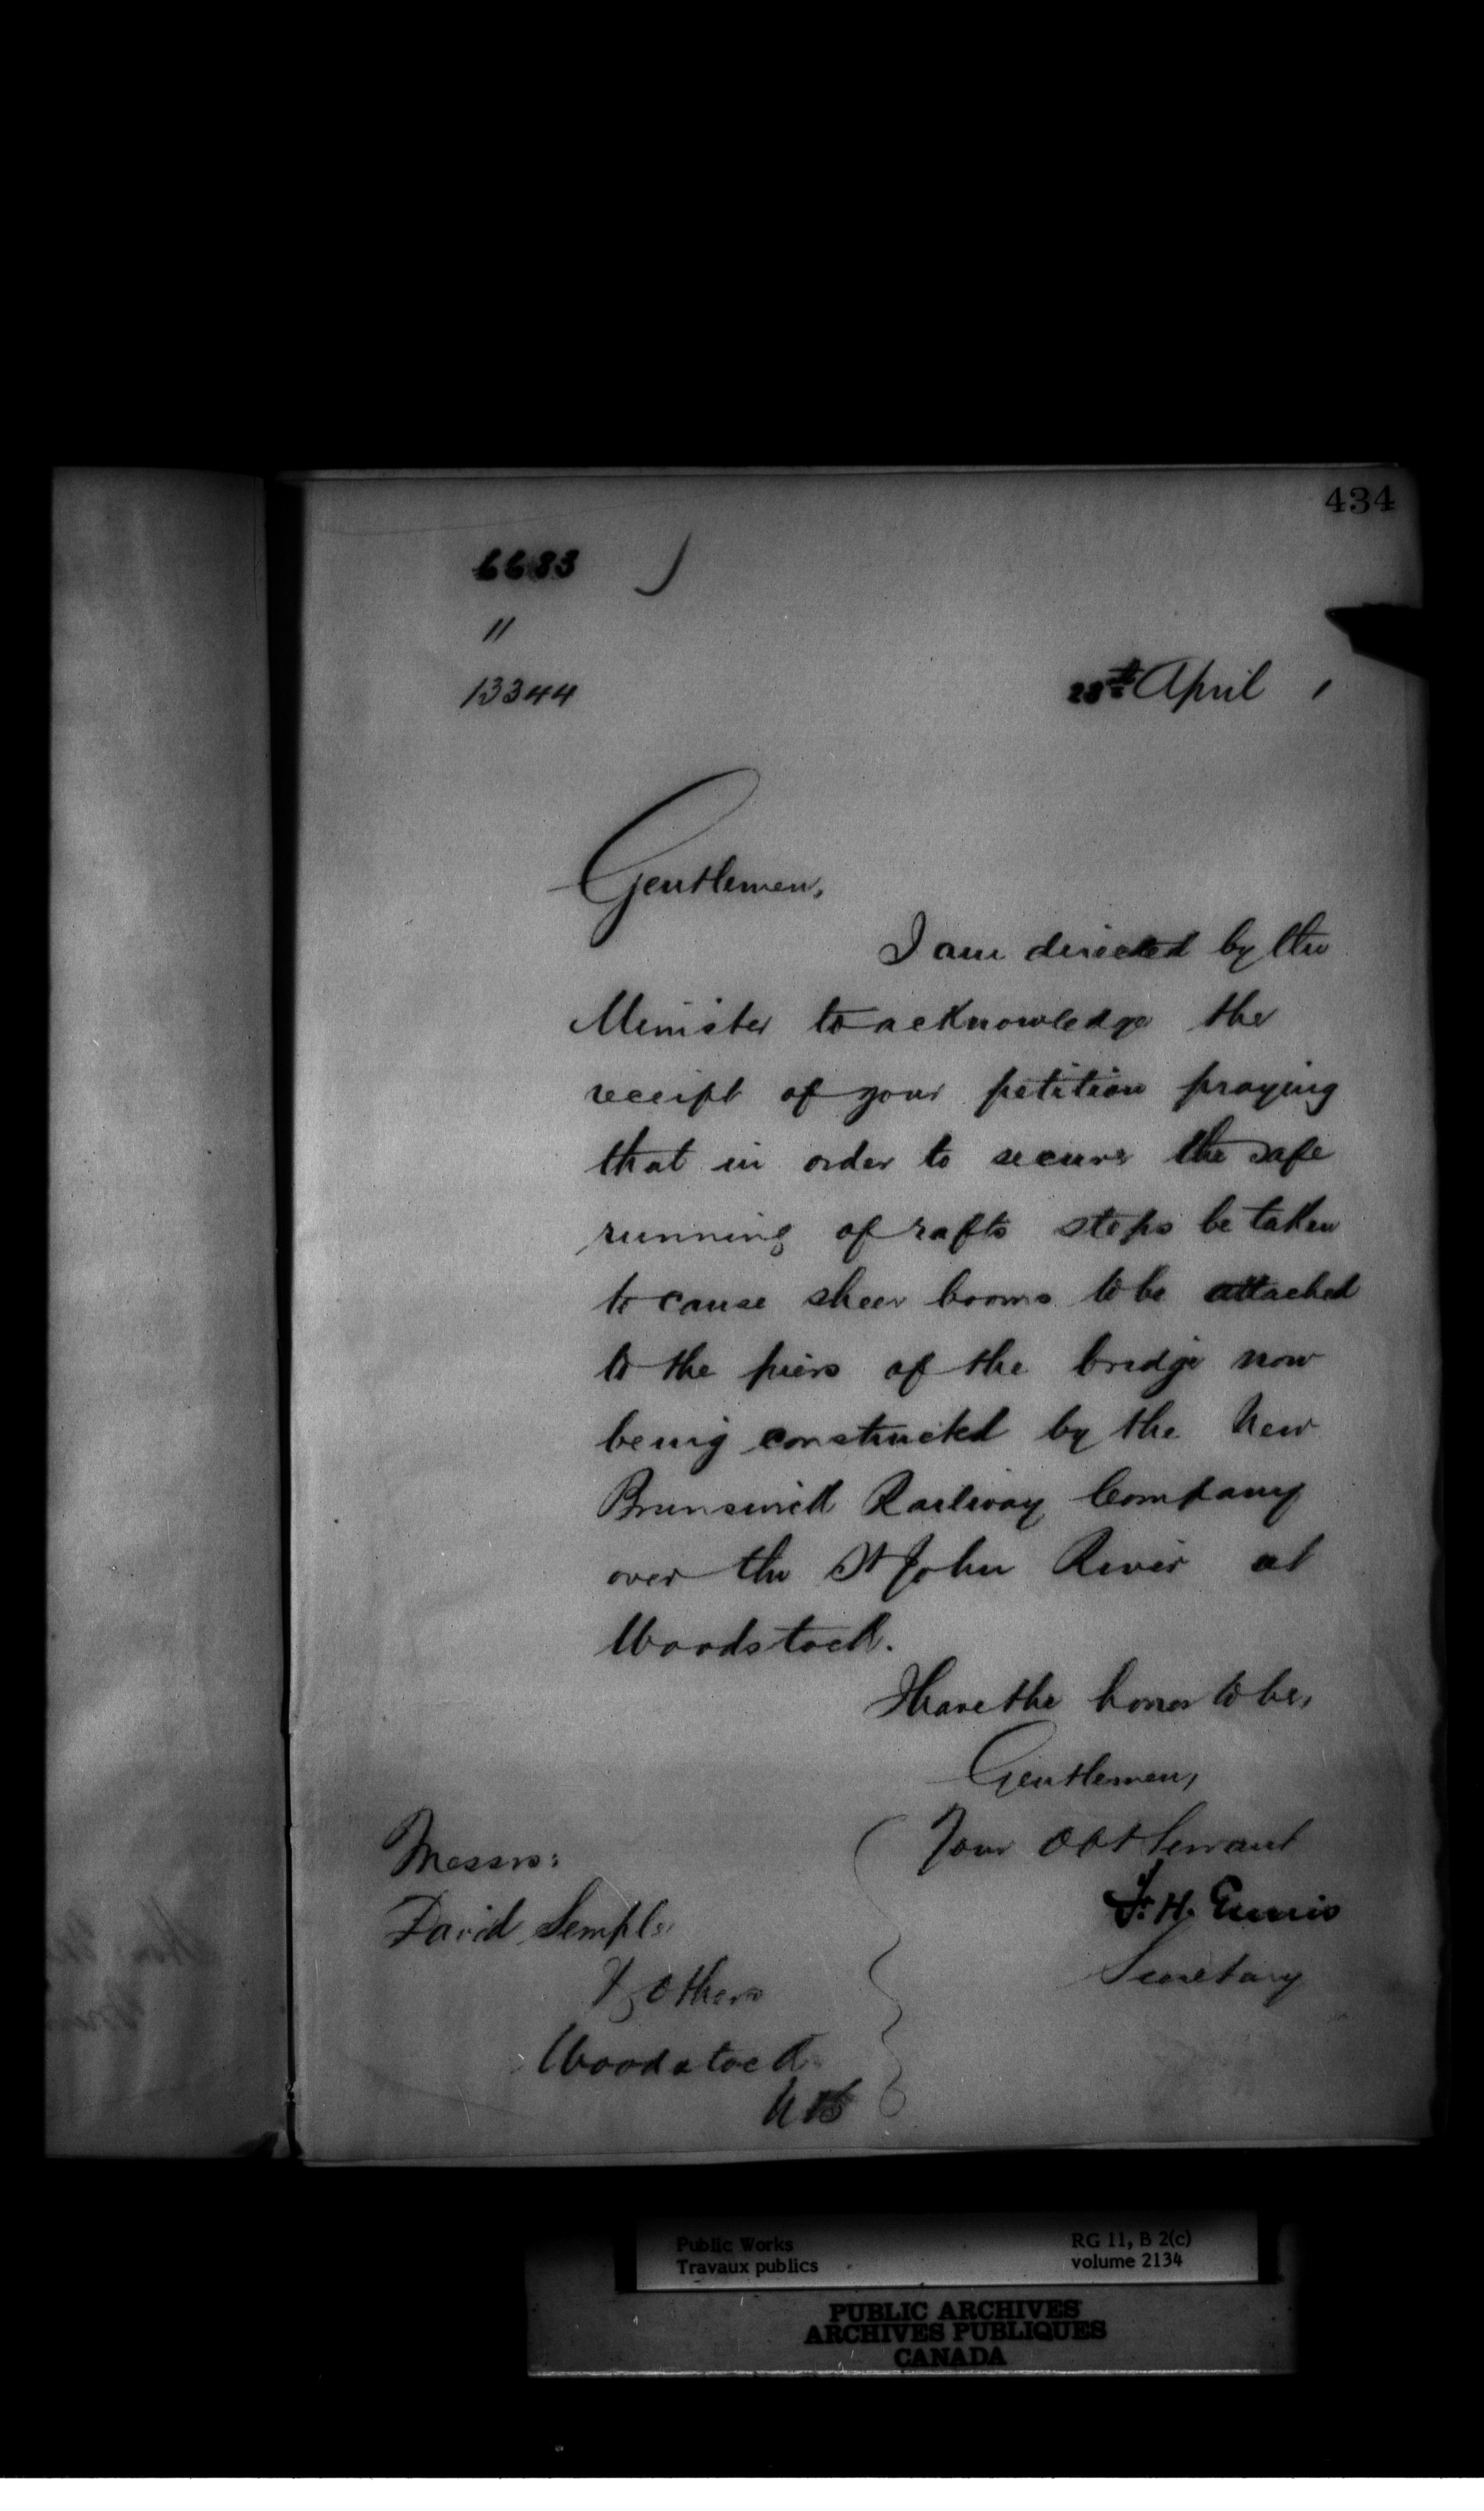 434
6633
"
13344
28th April
Gentlemen,
I am directed by the
Minister to acknowledge the
receipt of your petition praying
that in order to secure the safe
running of rafts steps be taken
to cause sheer booms to be attached
to the piers of the bridge now
being constructed by the New
Brunswick Railway Company
over the St John River at
Woodstock.
I have the honor to be,
Gentlemen,
Your Obt Servant
F. H. Ennis
Secretary
Messrs:
David Semple
& Others
Woodstock
NB
Public Works
Travaux publics
RG 11, B 2(c)
volume 2134
PUBLIC ARCHIVES
ARCHIVES PUBLIQUES
CANADA